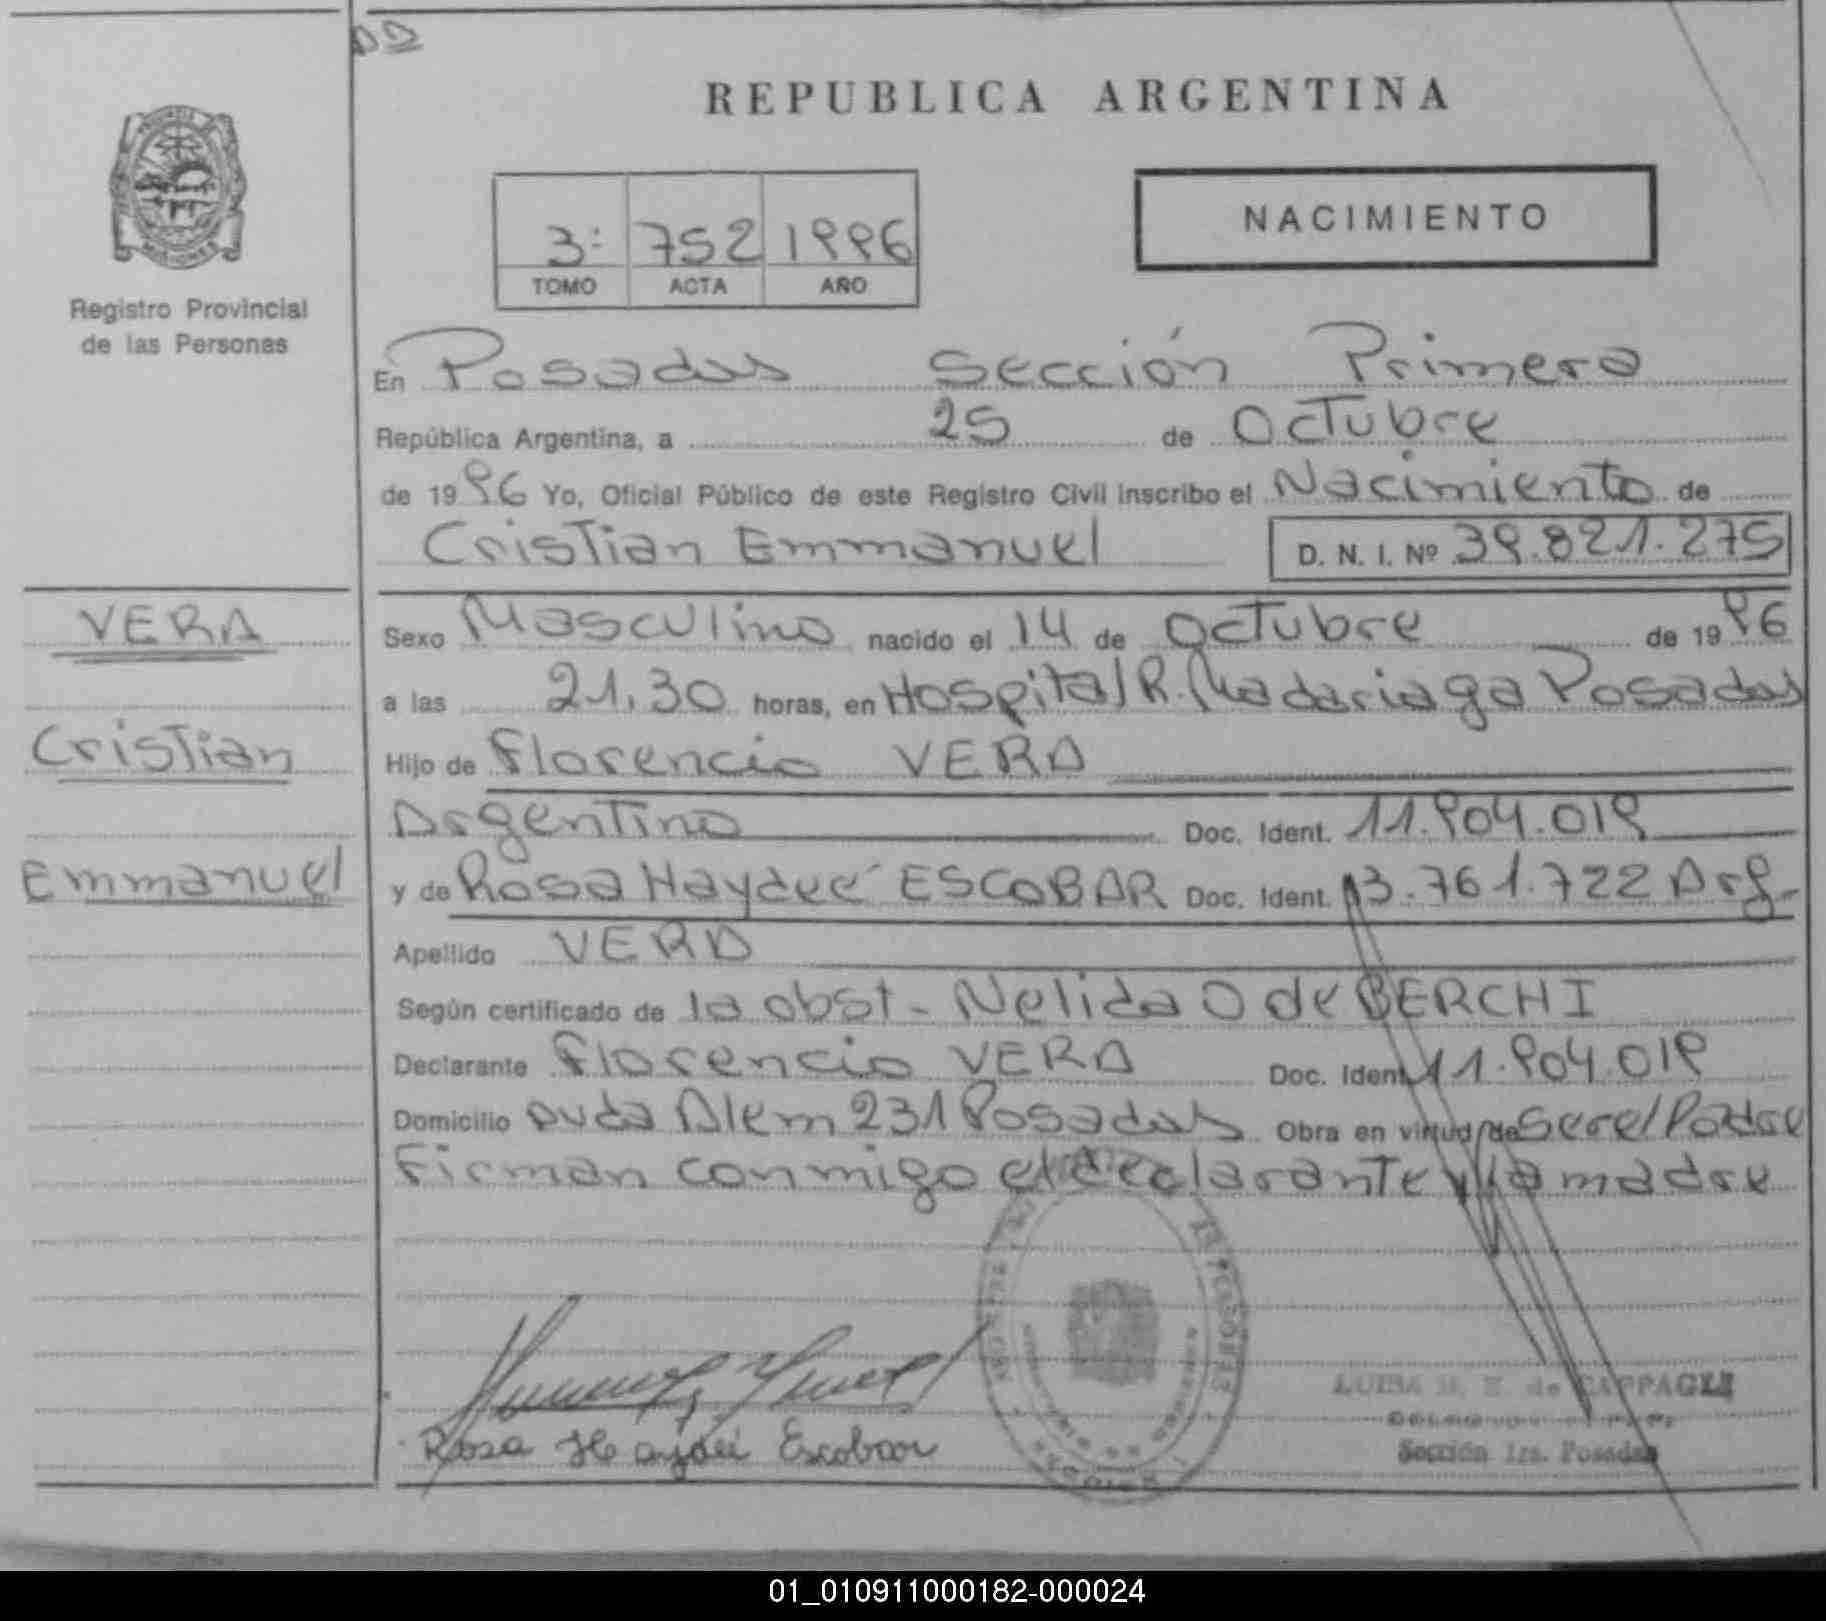 DD
REPUBLICA ARGENTINA
NACIMIENTO
3: 752 1996
TOMO ACTA AÑO
Registro Provincial
de las Personas
En Posadas Sección Primera
República Argentina, a 25 de Octubre
de 1996 Yo, Oficial Público de este Registro Civil inscribo el Nacimiento de
Cristian Emmanuel D. N. I. Nº 39.821.275
VERA
Cristian
Emmanuel
Sexo Masculino nacido el 14 de Octubre de 1996
a las 21,30 horas, en Hospital R. Madariaga Posadas
Hijo de Florencio VERA
Argentino Doc. Ident. 11.904.019
y de Rosa Haydeé ESCOBAR Doc. Ident. 13.761.722 Arg-
Apellido VERA
Según certificado de la obst- Nelida O de BERCHI
Declarante Florencio VERA Doc. Ident 11.904.019
Domicilio Avda Alem 231 Posadas Obra en virtud de Ser el Padre
Firman conmigo el declarante y la madre
Rosa Haydeé Escobar
LUISA de CAPPAGLI
Sección 1ra. Posadas
01_010911000182-000024